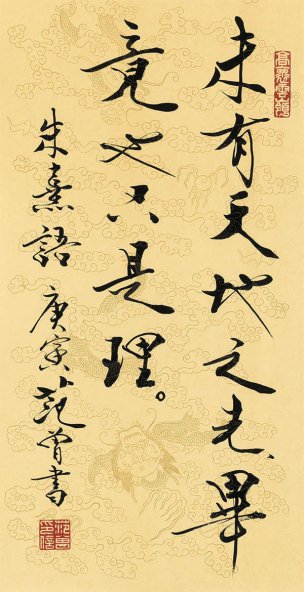 未有天地之先、畢
竟也只是理。
朱熹語 庚寅 范曾書